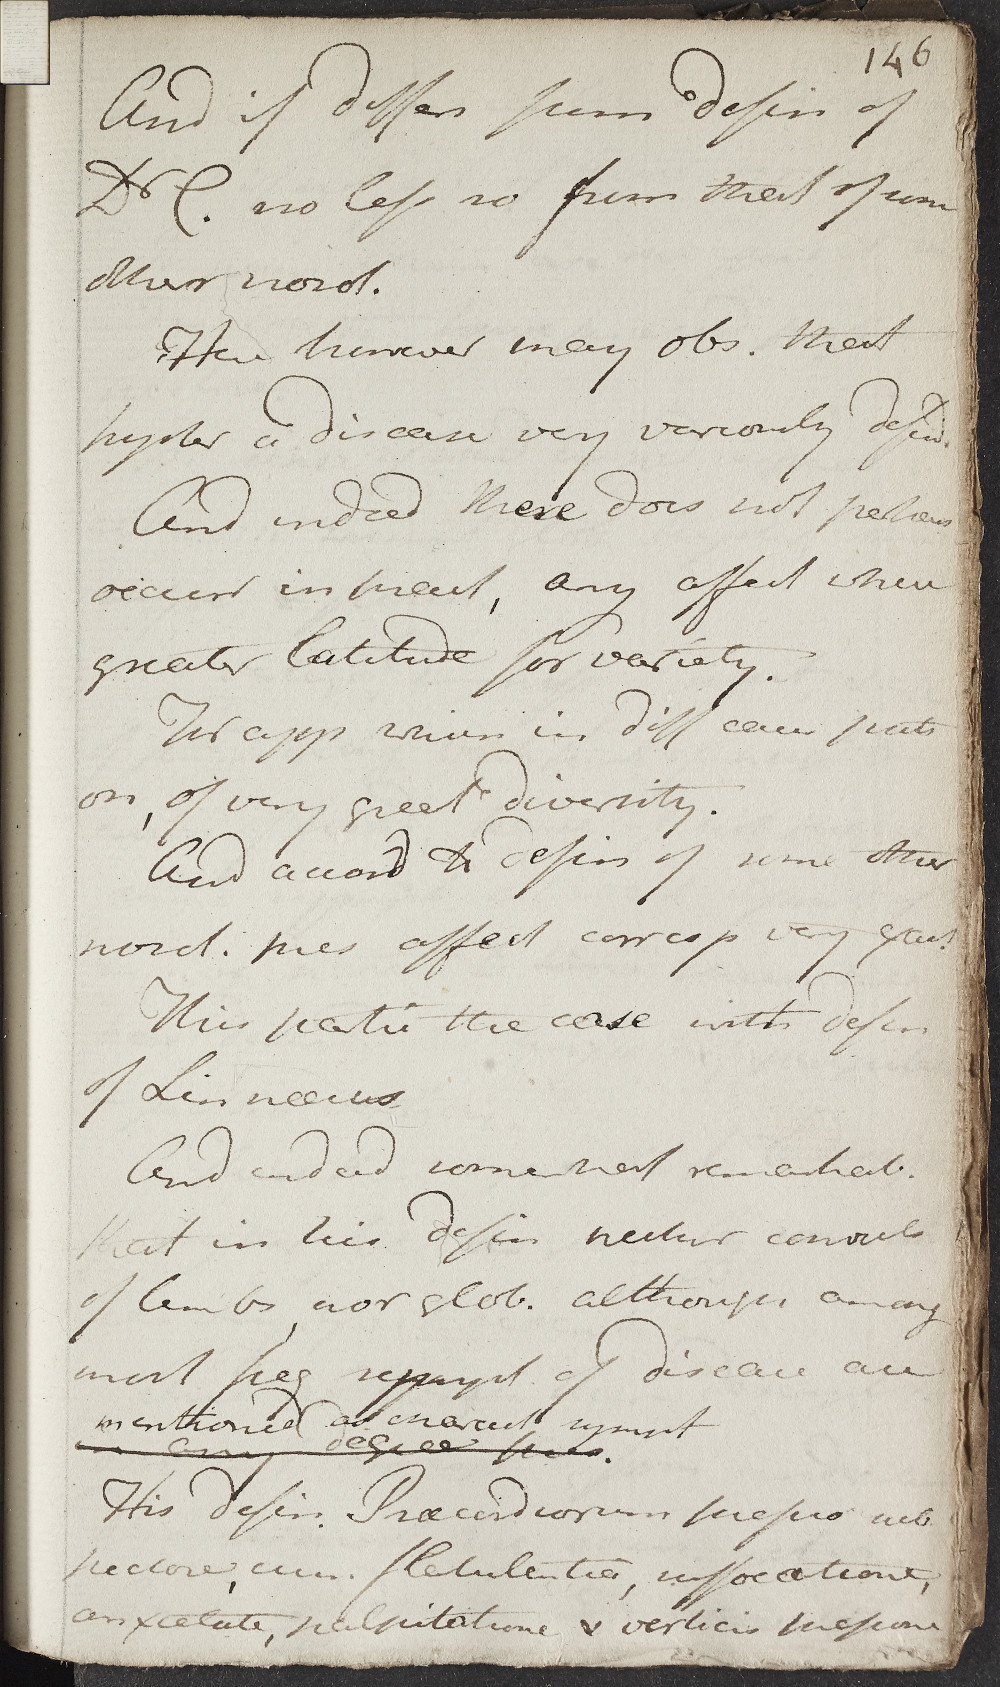 146
And if differs from defin of
Dr C. no less so from that of some
other nosol.
Here however may obs. that
hyster a disease very variously defin.
And indeed there does not perhaps
occur in pract, any affect where
greater latitude for variety.
For app when in diff
on, of very great diversity.
And accord to defin of some other
nosol. pres affect corresp very exact
This partic the case with defin
of Linnaeus
And indeed somewhat remarkab.
that in his defin neither convuls
of limbs, nor glob. although among
most freq sympt of disease are
mentioned as charact sympt
in any degree pres.
His defin. Præcordiorum pressio sub
pectore, cum. flatulentia, suffocatione,
anxietate, palpitatione & verticis pressione